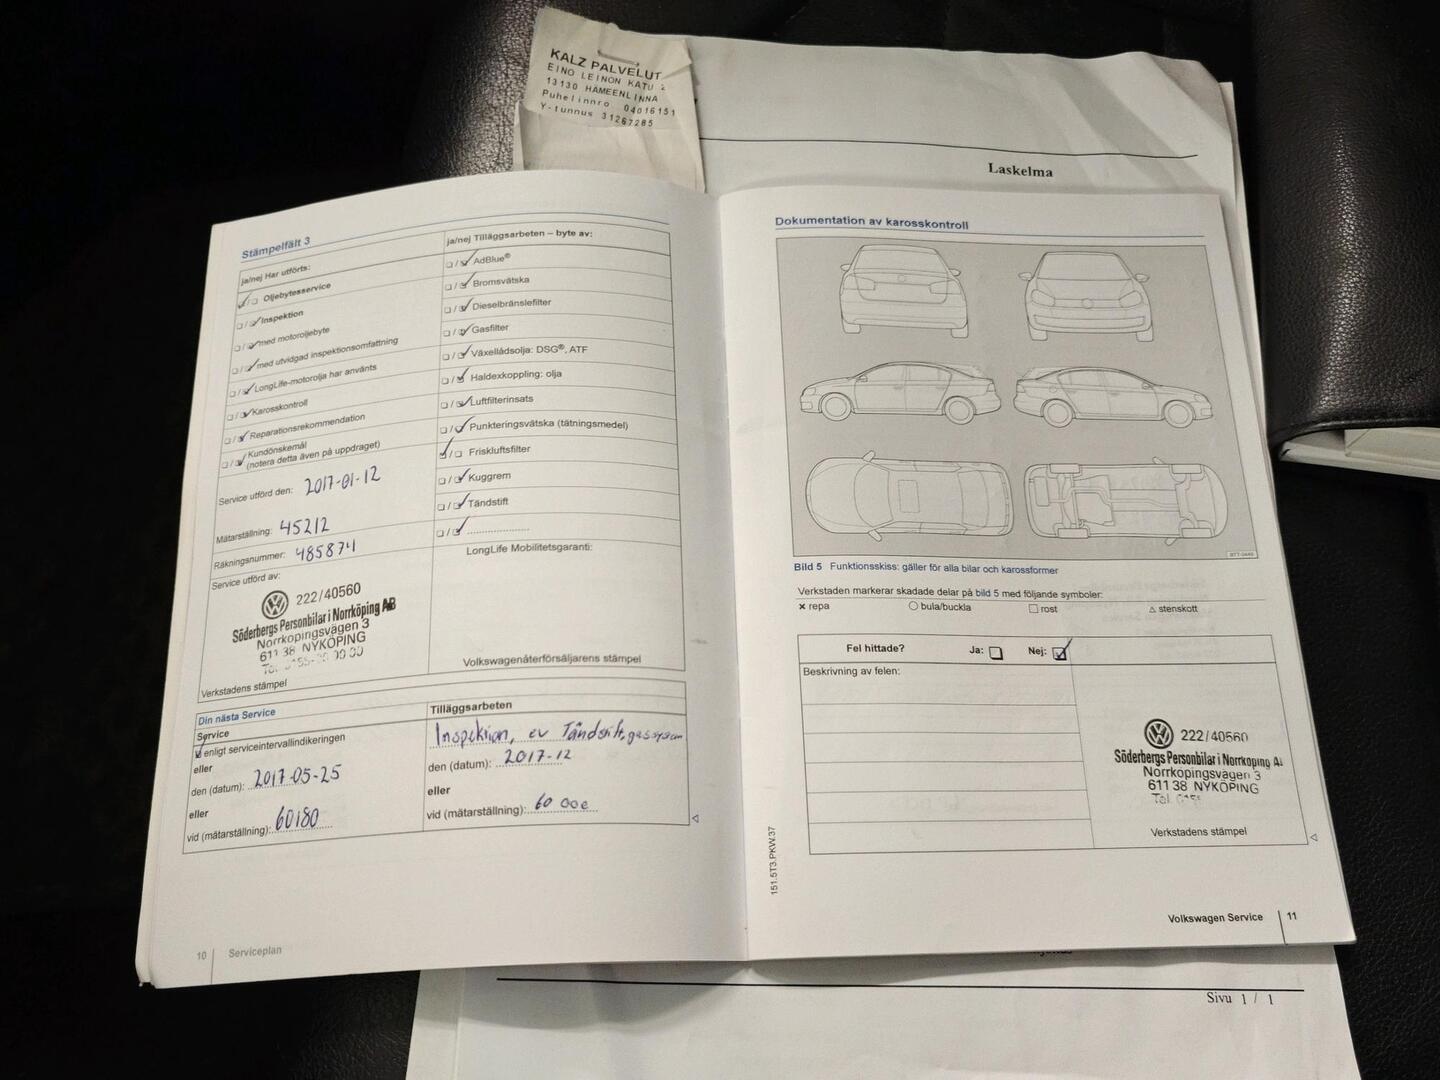 KALZ PALVELUT
EINO LEINON KATU 2
13130 HÄMEENLINNA
Puhelinnro. 04016151
Y-tunnus 31267285
Laskelma
Stämpelfält 3
ja/nej Har utförts:
Oljebytesservice
Inspektion
med motoroljebyte
med utvidgad inspektionsomfattning
LongLife-motorolja har använts
Karosskontroll
Reparationsrekommendation
Kundönskemål
(notera detta även på uppdraget)
Service utförd den: 2017-01-12
Mätarställning: 45212
Räkningsnummer: 485874
Service utförd av:
222/40560
Söderbergs Personbilar i Norrköping AB
Norrköpingsvägen 3
611 38 NYKÖPING
Verkstadens stämpel
ja/nej Tilläggsarbeten – byte av:
AdBlue®
Bromsvätska
Dieselbränslefilter
Gasfilter
Växellådsolja: DSG®, ATF
Haldexkoppling: olja
Luftfilterinsats
Punkteringsvätska (tätningsmedel)
Friskluftsfilter
Kuggrem
Tändstift
LongLife Mobilitetsgaranti:
Volkswagenåterförsäljarens stämpel
Din nästa Service
Service
enligt serviceintervallindikeringen
eller
den (datum): 2017-05-25
eller
vid (mätarställning): 60180
Tilläggsarbeten
Inspektion, ev Tändstift, gassystem
den (datum): 2017-12
eller
vid (mätarställning): 60 000
10 Serviceplan
Dokumentation av karosskontroll
BTT-0449
Bild 5 Funktionsskiss: gäller för alla bilar och karossformer
Verkstaden markerar skadade delar på bild 5 med följande symboler:
× repa ○ bula/buckla □ rost △ stenskott
Fel hittade? Ja: Nej:
Beskrivning av felen:
222/40560
Söderbergs Personbilar i Norrköping A
Norrköpingsvägen 3
611 38 NYKÖPING
Verkstadens stämpel
151.5T3.PKW.37
Volkswagen Service 11
Sivu 1 / 1